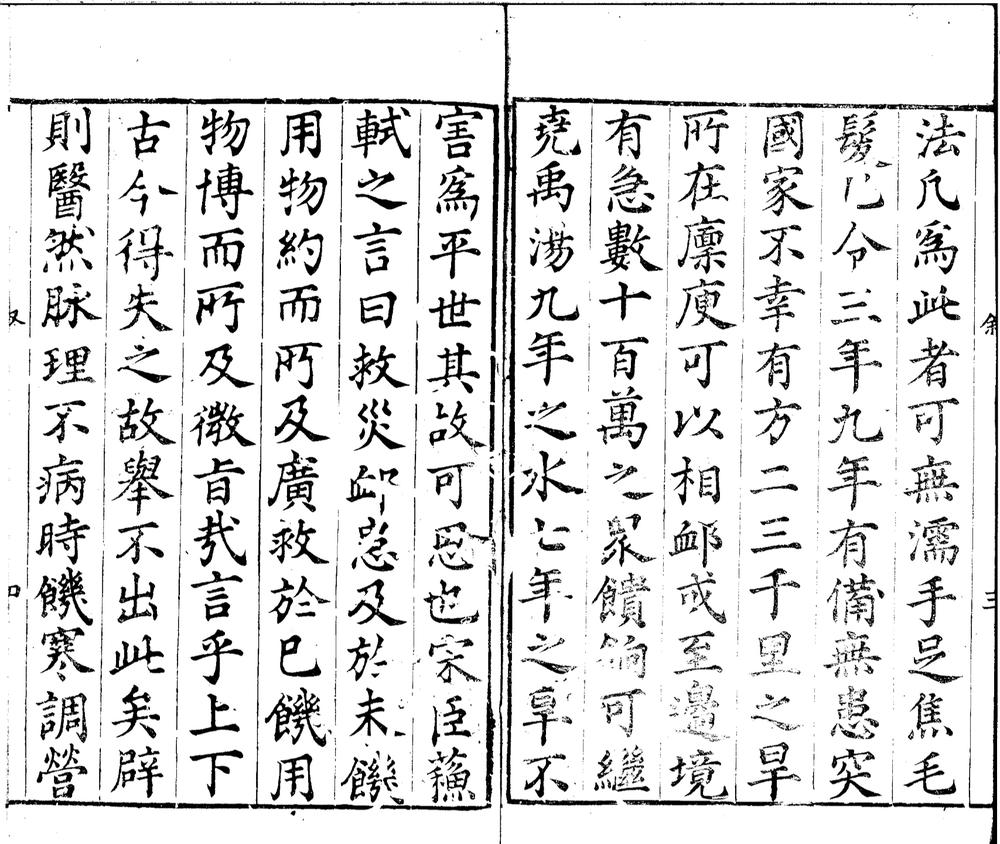 叙
三
法凡爲此者可無濡手足焦毛
髮已令三年九年有備無患突
國家不幸有方二三千里之旱
所在廩庾可以相衈或至邊境
有急數十百萬之衆饋餉可繼
堯禹湯九年之水七年之旱不
害爲平世其故可思也宋臣蘓
軾之言曰救災卹急及於未饑
用物約而所及廣救於已饑用
物博而所及微旨哉言乎上下
古今得失之故舉不出此矣辟
則醫然脉理不病時饑寒調營
叙
四